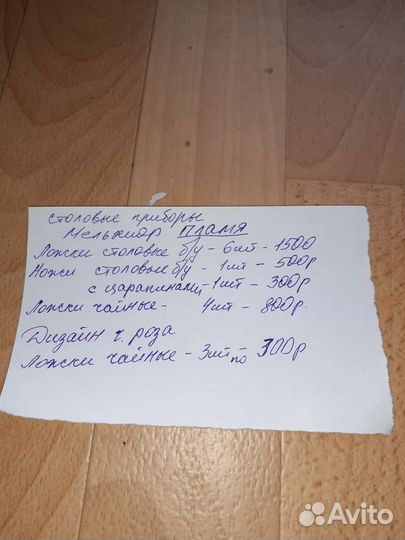 Столовые приборы
Мельхиор пламя
Ложки столовые б/у - 6шт - 1500
Ножи столовые б/у - 1шт - 500р
с царапинами - 1шт - 300р
Ложки чайные - 4шт - 800р.
Дизайн ч. роза
Ложки чайные - 3шт - по 300р
Avito